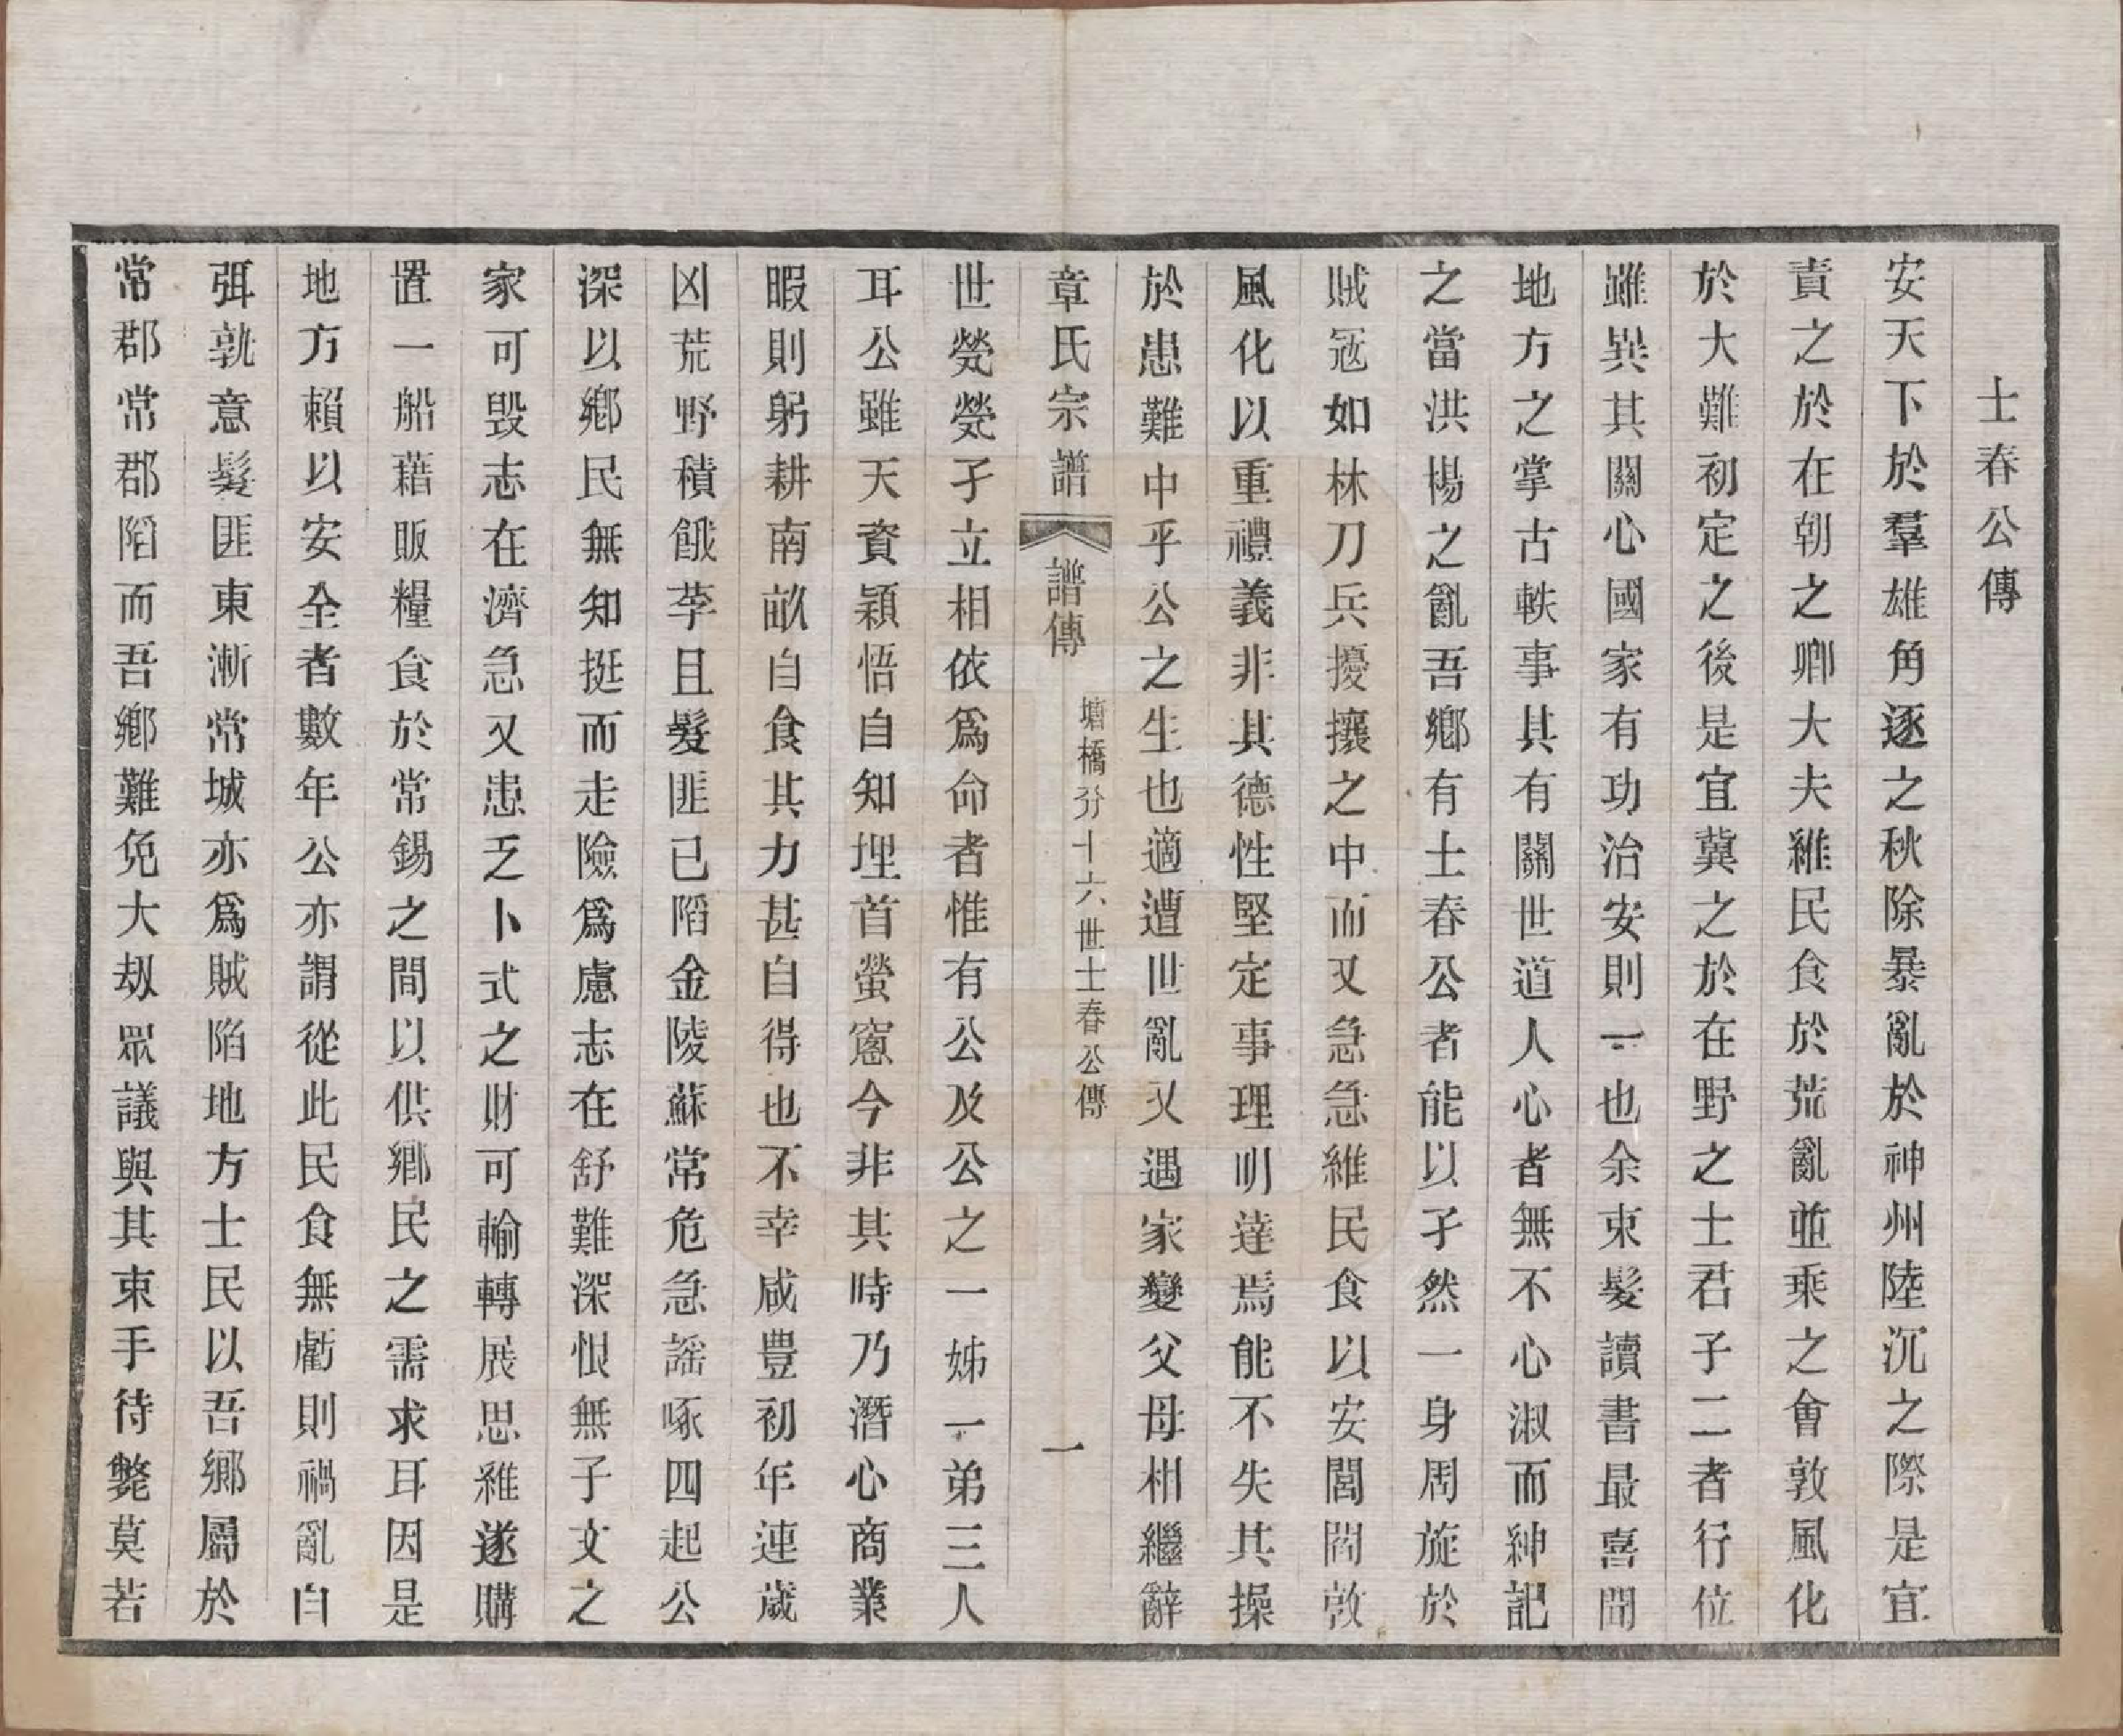 士春公傳
安天下於羣雄角逐之秋除暴亂於神州陸沉之際是宜
責之於在朝之卿大夫維民食於荒亂並乘之會敦風化
於大難初定之後是宜冀之於在野之士君子二者行位
雖異其關心國家有功治安則一也余束髮讀書最喜聞
地方之掌古軼事其有關世道人心者無不心淑而紳記
之當洪楊之亂吾鄉有士春公者能以孑然一身周旋於
賊冦如林刀兵擾攘之中而又急急維民食以安閭閻敦
風化以重禮義非其德性堅定事理明達焉能不失其操
於患難中乎公之生也適遭世亂又遇家變父母相繼辭
章氏宗譜
譜傳
塘橋分十六世士春公傳
一
世煢煢孑立相依爲命者惟有公及公之一姊一弟三人
耳公雖天資穎悟自知埋首螢窻今非其時乃潛心商業
暇則躬耕南畝自食其力甚自得也不幸咸豐初年連歲
凶荒野積餓莩且髮匪已陷金陵蘇常危急謡啄四起公
深以鄉民無知挺而走險爲慮志在舒難深恨無子文之
家可毀志在濟急又患乏卜式之財可輸轉展思維遂購
置一船藉販糧食於常錫之間以供鄉民之需求耳因是
地方賴以安全者數年公亦謂從此民食無虧則禍亂自
弭孰意髮匪東漸常城亦爲賊陷地方士民以吾鄉屬於
常郡常郡陷而吾鄉難免大刼眾議與其束手待斃莫若